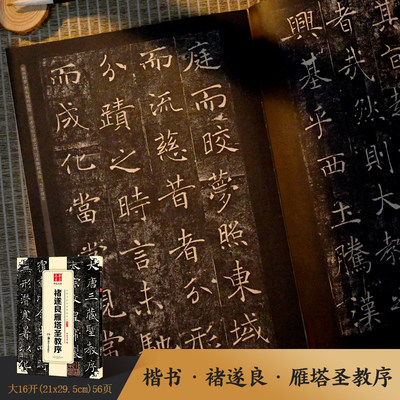 者哉然則大
興基乎西土騰漢
庭而皎夢照東域
而流慈昔者分形
分蹟之時言未馳
而成化當常現
大唐三藏聖教序
褚遂良雁塔圣教序
形潛寒暑以
大16开(21x29.5cm)56页
楷书·褚遂良·雁塔圣教序